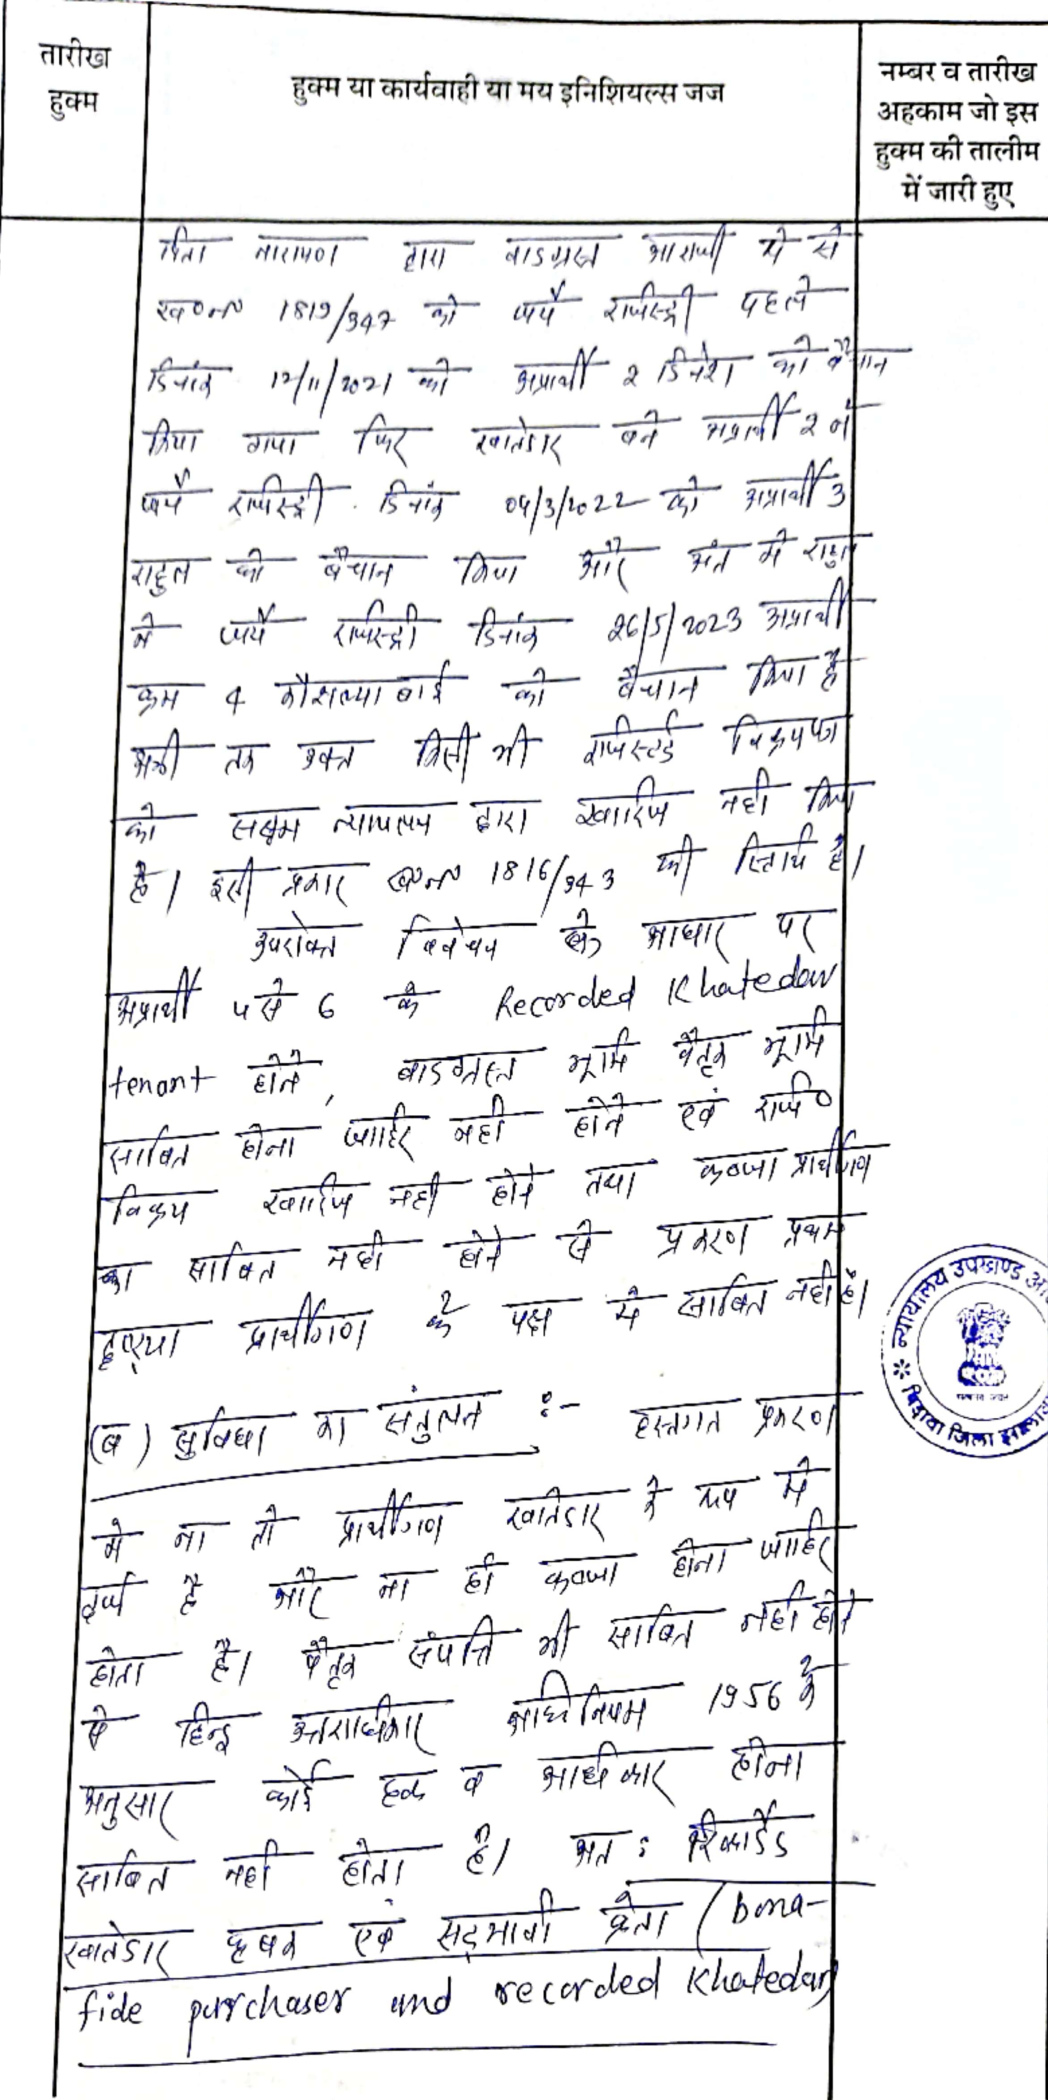 तारीख
हुक्म
हुक्म या कार्यवाही या मय इनिशियल्स जज
नम्बर व तारीख
अहकाम जो इस
हुक्म की तालीम
में जारी हुए
पिता नारायण द्वारा वादग्रस्त आराजी मे से
ख०न० 1819/347 को जर्ये रजिस्ट्री पहले
दिनांक 12/11/2021 को अप्रार्थी 2 दिनेश को बैचान
किया गया फिर खातेदार बने अप्रार्थी 2 ने
जर्ये रजिस्ट्री दिनांक 04/3/2022 को अप्रार्थी 3
राहुल को बैचान किया और अंत मे राहुल
ने जर्ये रजिस्ट्री दिनांक 26/5/2023 अप्रार्थी
क्रम 4 कौशल्या बाई को बैचान किया है
अभी तक उक्त किसी भी रजिस्टर्ड विक्रयपत्र
को सक्षम न्यायालय द्वारा खारिज नही किया
है। इसी प्रकार ख०न० 1816/343 की स्तिथि है।
उपरोक्त विवेचन के आधार पर
अप्रार्थी 4 से 6 के Recorded Khatedar
tenant होने, वादग्रस्त भूमि पैतृक भूमि
साबित होना जाहिर नही होने एवं रजि०
विक्रय खारिज नही होने तथा कब्जा प्रार्थीगण
का साबित नही होने से प्रकरण प्रथम
दृष्टया प्रार्थीगण के पक्ष मे साबित नही है।
(ब) सुविधा का संतुलन :- हस्तगत प्रकरण
मे ना तो प्रार्थीगण खातेदार के रूप मे
दर्ज है और ना ही कब्जा होना जाहिर
होता है। पैतृक संपत्ति भी साबित नही होने
से हिन्दू उत्तराधिकार अधिनियम 1956 के
अनुसार कोई हक व अधिकार होना
साबित नही होता है। अत: रिकार्डेड
खातेदार कृषक एवं सद्भावी क्रेता (bona-
fide purchaser and recorded Khatedar)
न्यायालय उपखण्ड
पिड़ावा जिला